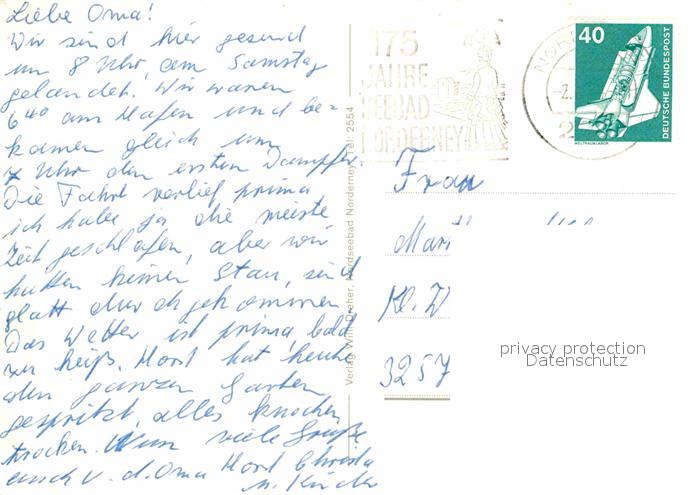 Liebe Oma!
Wir sind hier gesund
um 8 Uhr am Samstag
gelandet. Wir waren
6 40 am Hafen und be-
kamen gleich um
7 Uhr den ersten Dampfer.
Die Fahrt verlief prima
ich habe ja die meiste
Zeit geschlafen, aber wir
hatten keinen Stau, sind
glatt durchgekommen
Das Wetter ist prima, bald
zu heiß. Horst hat heute
den ganzen Garten
gespritzt, alles knochen
trocken. Nun viele Grüße
auch v. d. Oma Horst Christa
u. Kinder
Verlag Willi Dreher, Nordseebad Norderney, Tel: 2554
175
JAHRE
SEEBAD
NORDERNEY
40
DEUTSCHE BUNDESPOST
WELTRAUMLABOR
Frau
Kl.
3257
privacy protection
Datenschutz